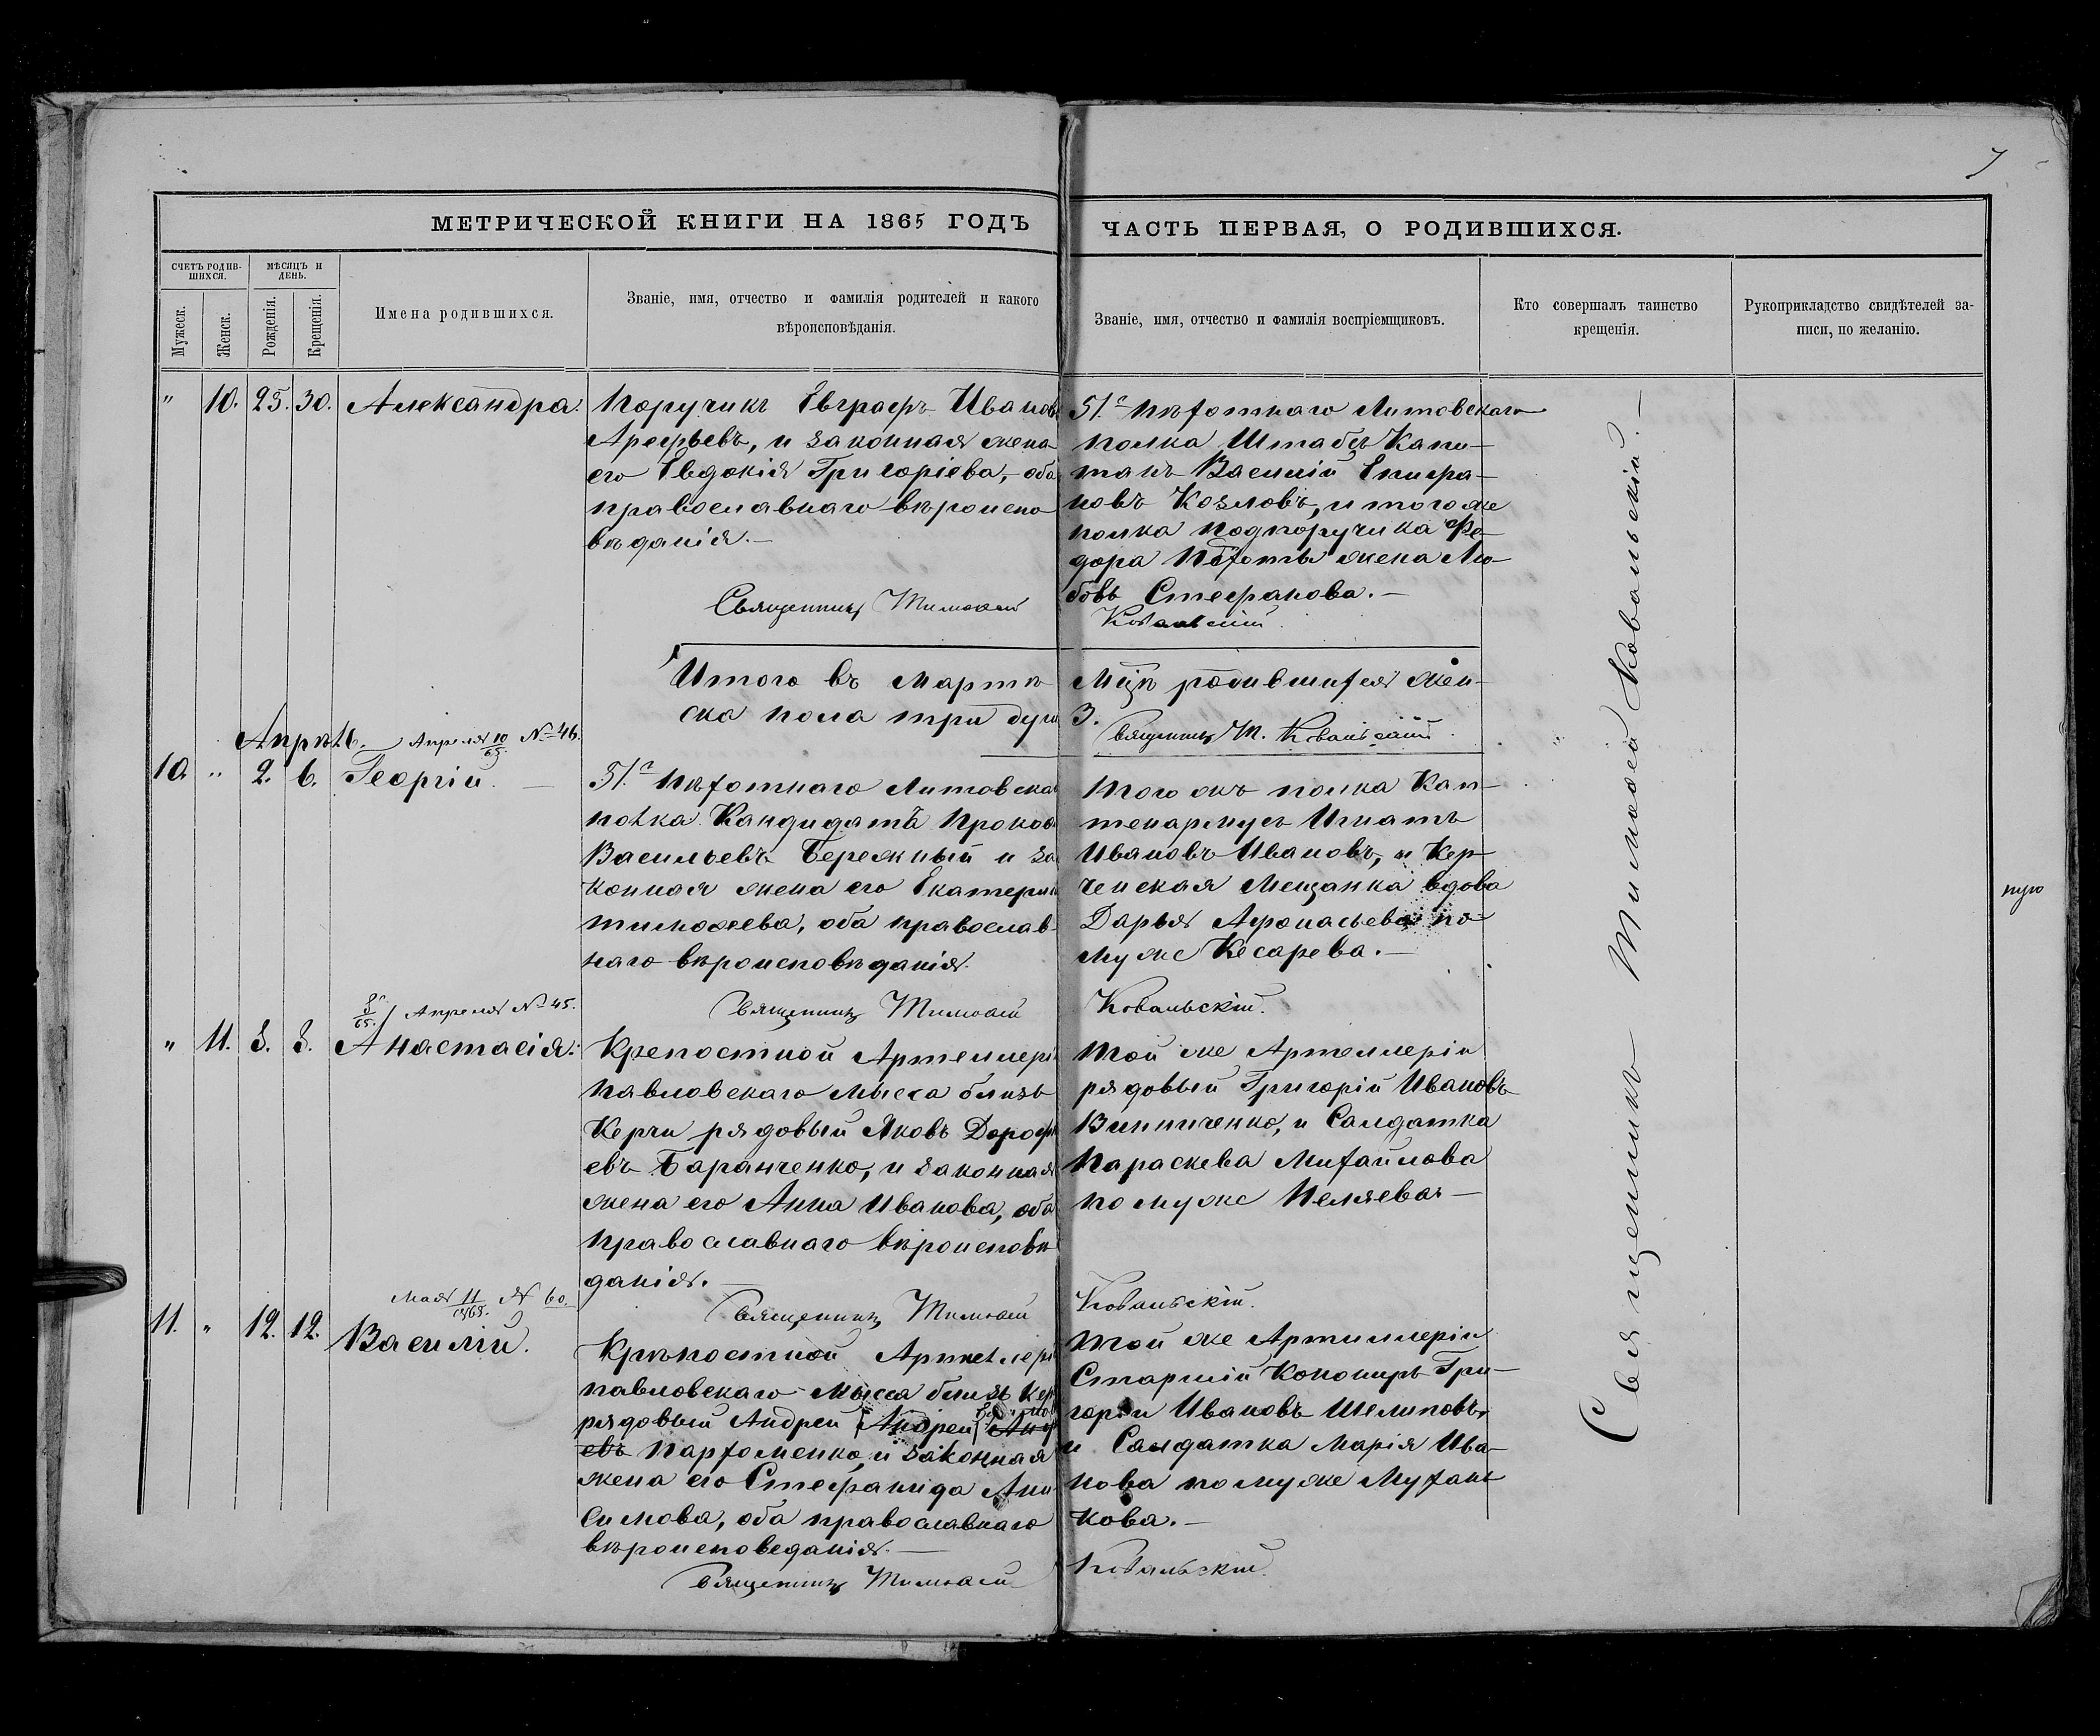 7
МЕТРИЧЕСКОЙ КНИГИ НА 1865 ГОДЪ
ЧАСТЬ ПЕРВАЯ, О РОДИВШИХСЯ.
СЧЕТЪ РОДИВ-
ШИХСЯ.
МѢСЯЦЪ И
ДЕНЬ.
Мужеск.
Женск.
Рожденія.
Крещенія.
Имена родившихся.
Званіе, имя, отчество и фамилія родителей и какого
вѣроисповѣданія.
Званіе, имя, отчество и фамилія воспріемщиковъ.
Кто совершалъ таинство
крещенія.
Рукоприкладство свидѣтелей за-
писи, по желанію.
" 10. 25. 30. Александра.
Поручикъ Евграфъ Ивановъ
Арефьевъ, и законная жена
его Евдокія Григоріева, оба
православнаго вѣроиспо
вѣданія.—
Священникъ Тимоѳей
51.го Пѣхотнаго Литовскаго
полка Штабсъ Капи-
танъ Василій Епифа-
новъ Козловъ, и тогоже
полка подпоручика Ѳе-
дора жена Лю-
бовь Стефанова.—
Ковальскій.
Итого въ Мартѣ
ска пола три души
Мцѣ родившихся жен-
3.
Священникъ Т. Ковальскій.
Апрѣль. Апреля 10/65. №46.
10. " 2. 6. Георгій.
51.го Пѣхотнаго Литовска
полка Кандидатъ Прокоф
Васильевъ Бережный и за
конная жена его Екатерин
Тимоѳеева, оба православ-
наго вѣроисповѣданія.
Священникъ Тимоѳей
Того жъ полка Кап-
тенармусъ Игнатъ
Ивановъ Ивановъ, и Кер-
ченская Мещанка вдова
Дарья Афонасьева по
мужѣ Кесарева.—
Ковальскій.
8/65. Апреля №45.
" 11. 8. 8. Анастасія.
Крепостной Артеллері
Павловскаго Мысса близь
Керчи рядовый Яковъ Дорофѣ
евъ Баранченко, и законная
жена его Анна Иванова, оба
православнаго вѣроисповѣ
данія.—
Священникъ Тимоѳей
Той же Артеллеріи
рядовый Григорій Ивановъ
Винниченко, и Салдатка
Параскева Михайлова
по мужѣ Неляева—
Ковальскій.
Мая 11/65. № 60.
11. " 12. 12. Василій.
Крѣпостной Артеллері
павловскаго Мысса близь Кер
рядовый Андрей Андрей
евъ Пархоменко, и законная
жена его Стефанида Ани
симова, оба православнаго
вѣроисповеданія.—
Священникъ Тимоѳей
Той же Артиллеріи
Старшій Конониръ Гри-
горій Ивановъ Шелиповъ,
и Салдатка Марія Ива-
нова по мужѣ Мухань
кова.—
Ковальскій.
Священникъ Тимоѳей Ковальскій.—